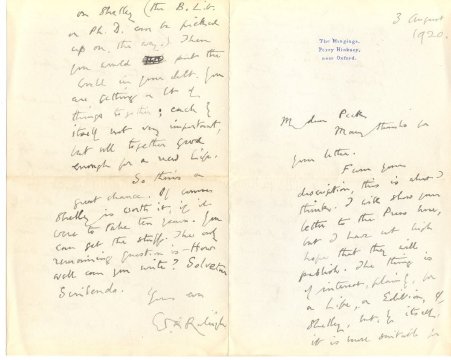 3 August
1920.
The Hangings,
Ferry Hinksey,
near Oxford.
My dear Peck
Many thanks for
your letter.
From your
description, this is what I
think. I will show your
letter to the Press here,
but I have not high
hope that they will
publish. The thing is
of interest, plainly, for
a Life, or Edition, of
Shelley, but by itself
it is more suitable for
on Shelley (the B. Litt.
or Ph. D. can be picked
up on the way.) Then
you would put the
world in your debt. You
are getting a lot of
things together; each by
itself not very important,
but all together good
enough for a new Life.
So there's a
great chance. Of course
Shelley is worth it, if it
were to take ten years. You
can get the stuff. The only
remaining question is – How
well can you write? Solvetur
Scribendo.
Yours ever
W A Raleigh